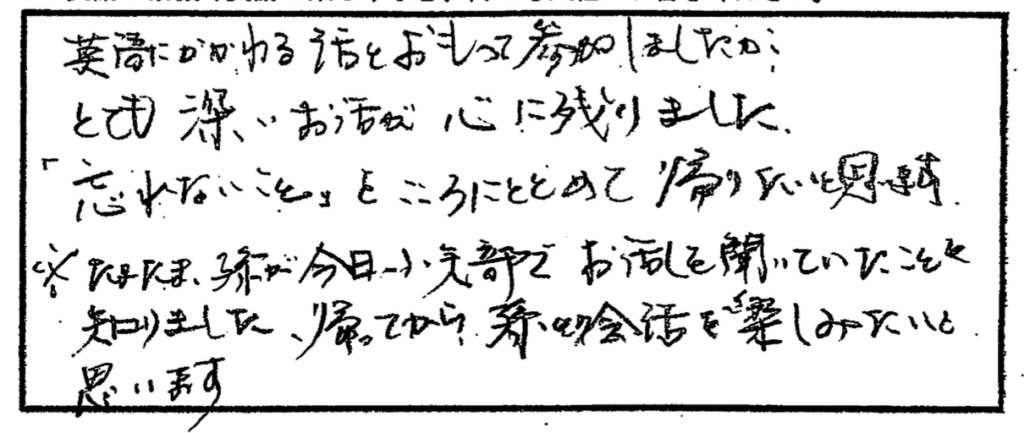 英語にかかわる話とおもって参加しましたが、
とても深いお話が心に残りました。
「忘れないこと」をこころにとどめて帰りたいと思います。
※たまたま、孫が今日 でお話しを聞いていたことを
知りました、帰ってから、孫との会話を楽しみたいと
思います